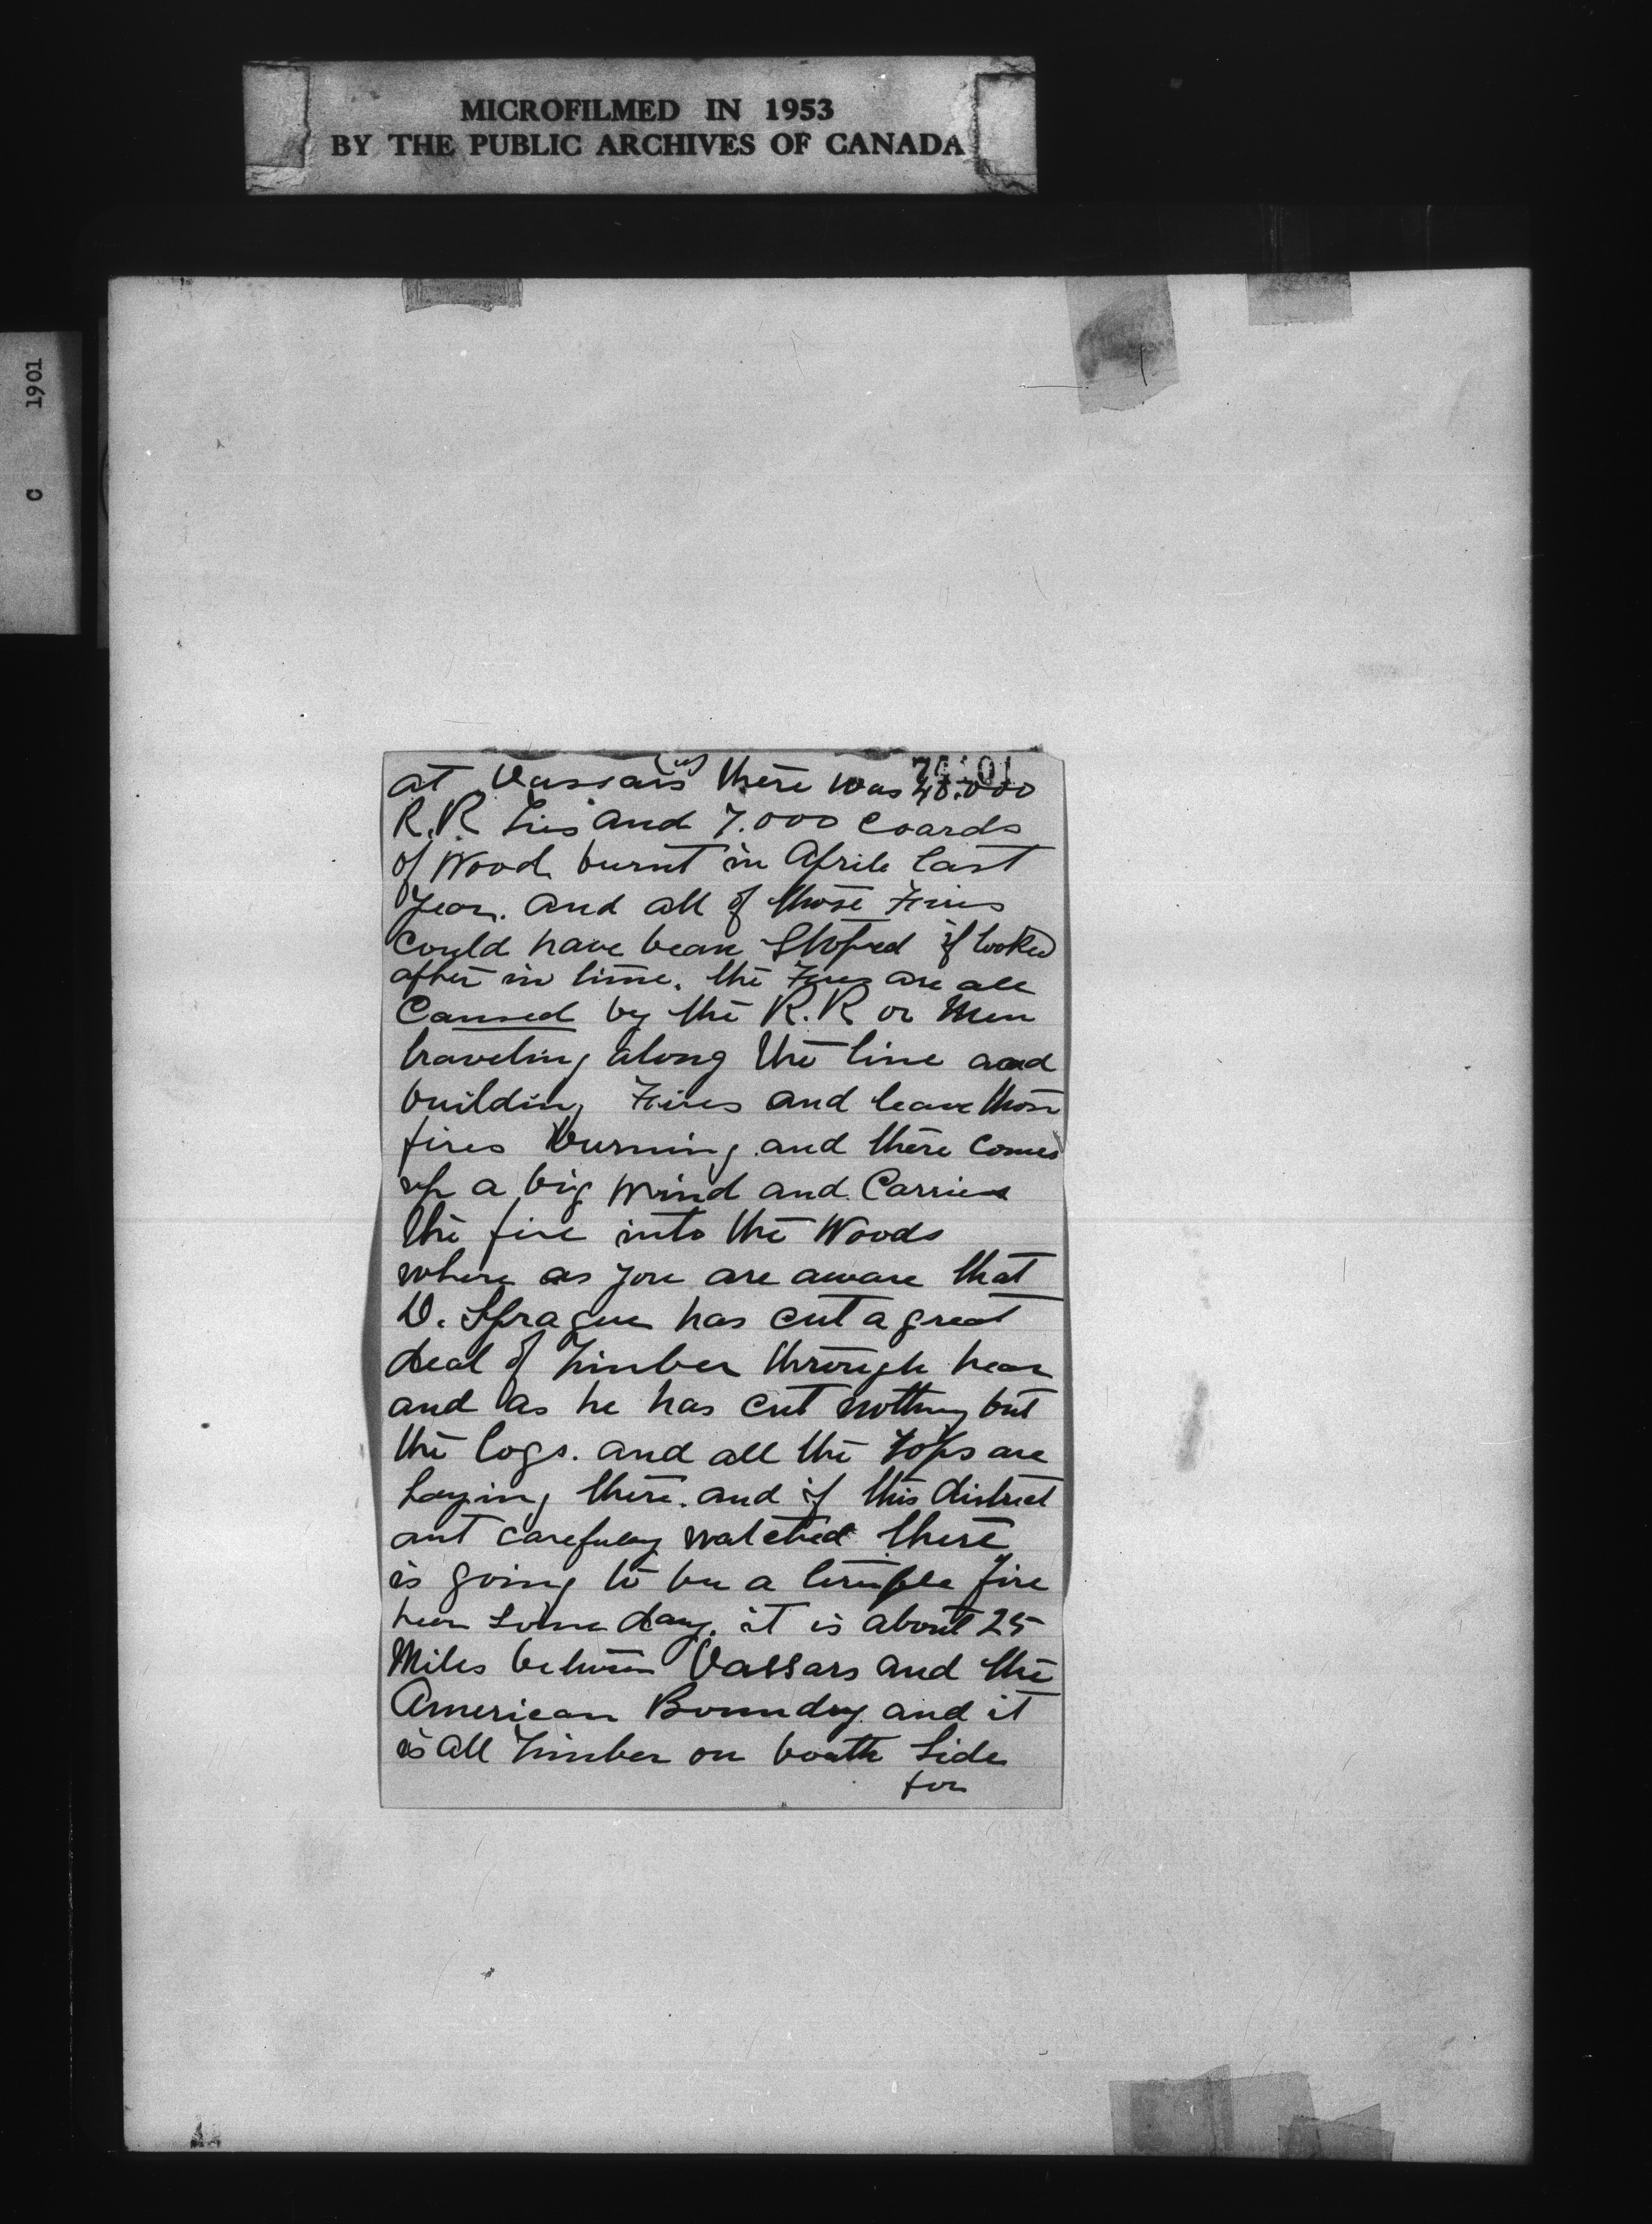 MICROFILMED IN 1953
BY THE PUBLIC ARCHIVES OF CANADA
C 1901
at Vassars there was 40.000
R.R Ties and 7.000 coards
of Wood burnt in Aprile last
year. and all of those Fires
could have bean Stoped if looked
after in time. the Fires are all
Caused by the R.R or Men
traveling along the line and
building Fires and leave those
fires burning and there comes
up a big wind and Carries
the fire into the Woods
where as you are aware that
D. Sprague has cut a great
deal of Timber through hear
and as he has cut nothing but
the logs. and all the Tops are
Laying there. and if this district
ant carefuly watched there
is going to be a fire
hear Some day. it is about 25
Miles between Vassars and the
American Boundry and it
is all Timber on boath Side
for